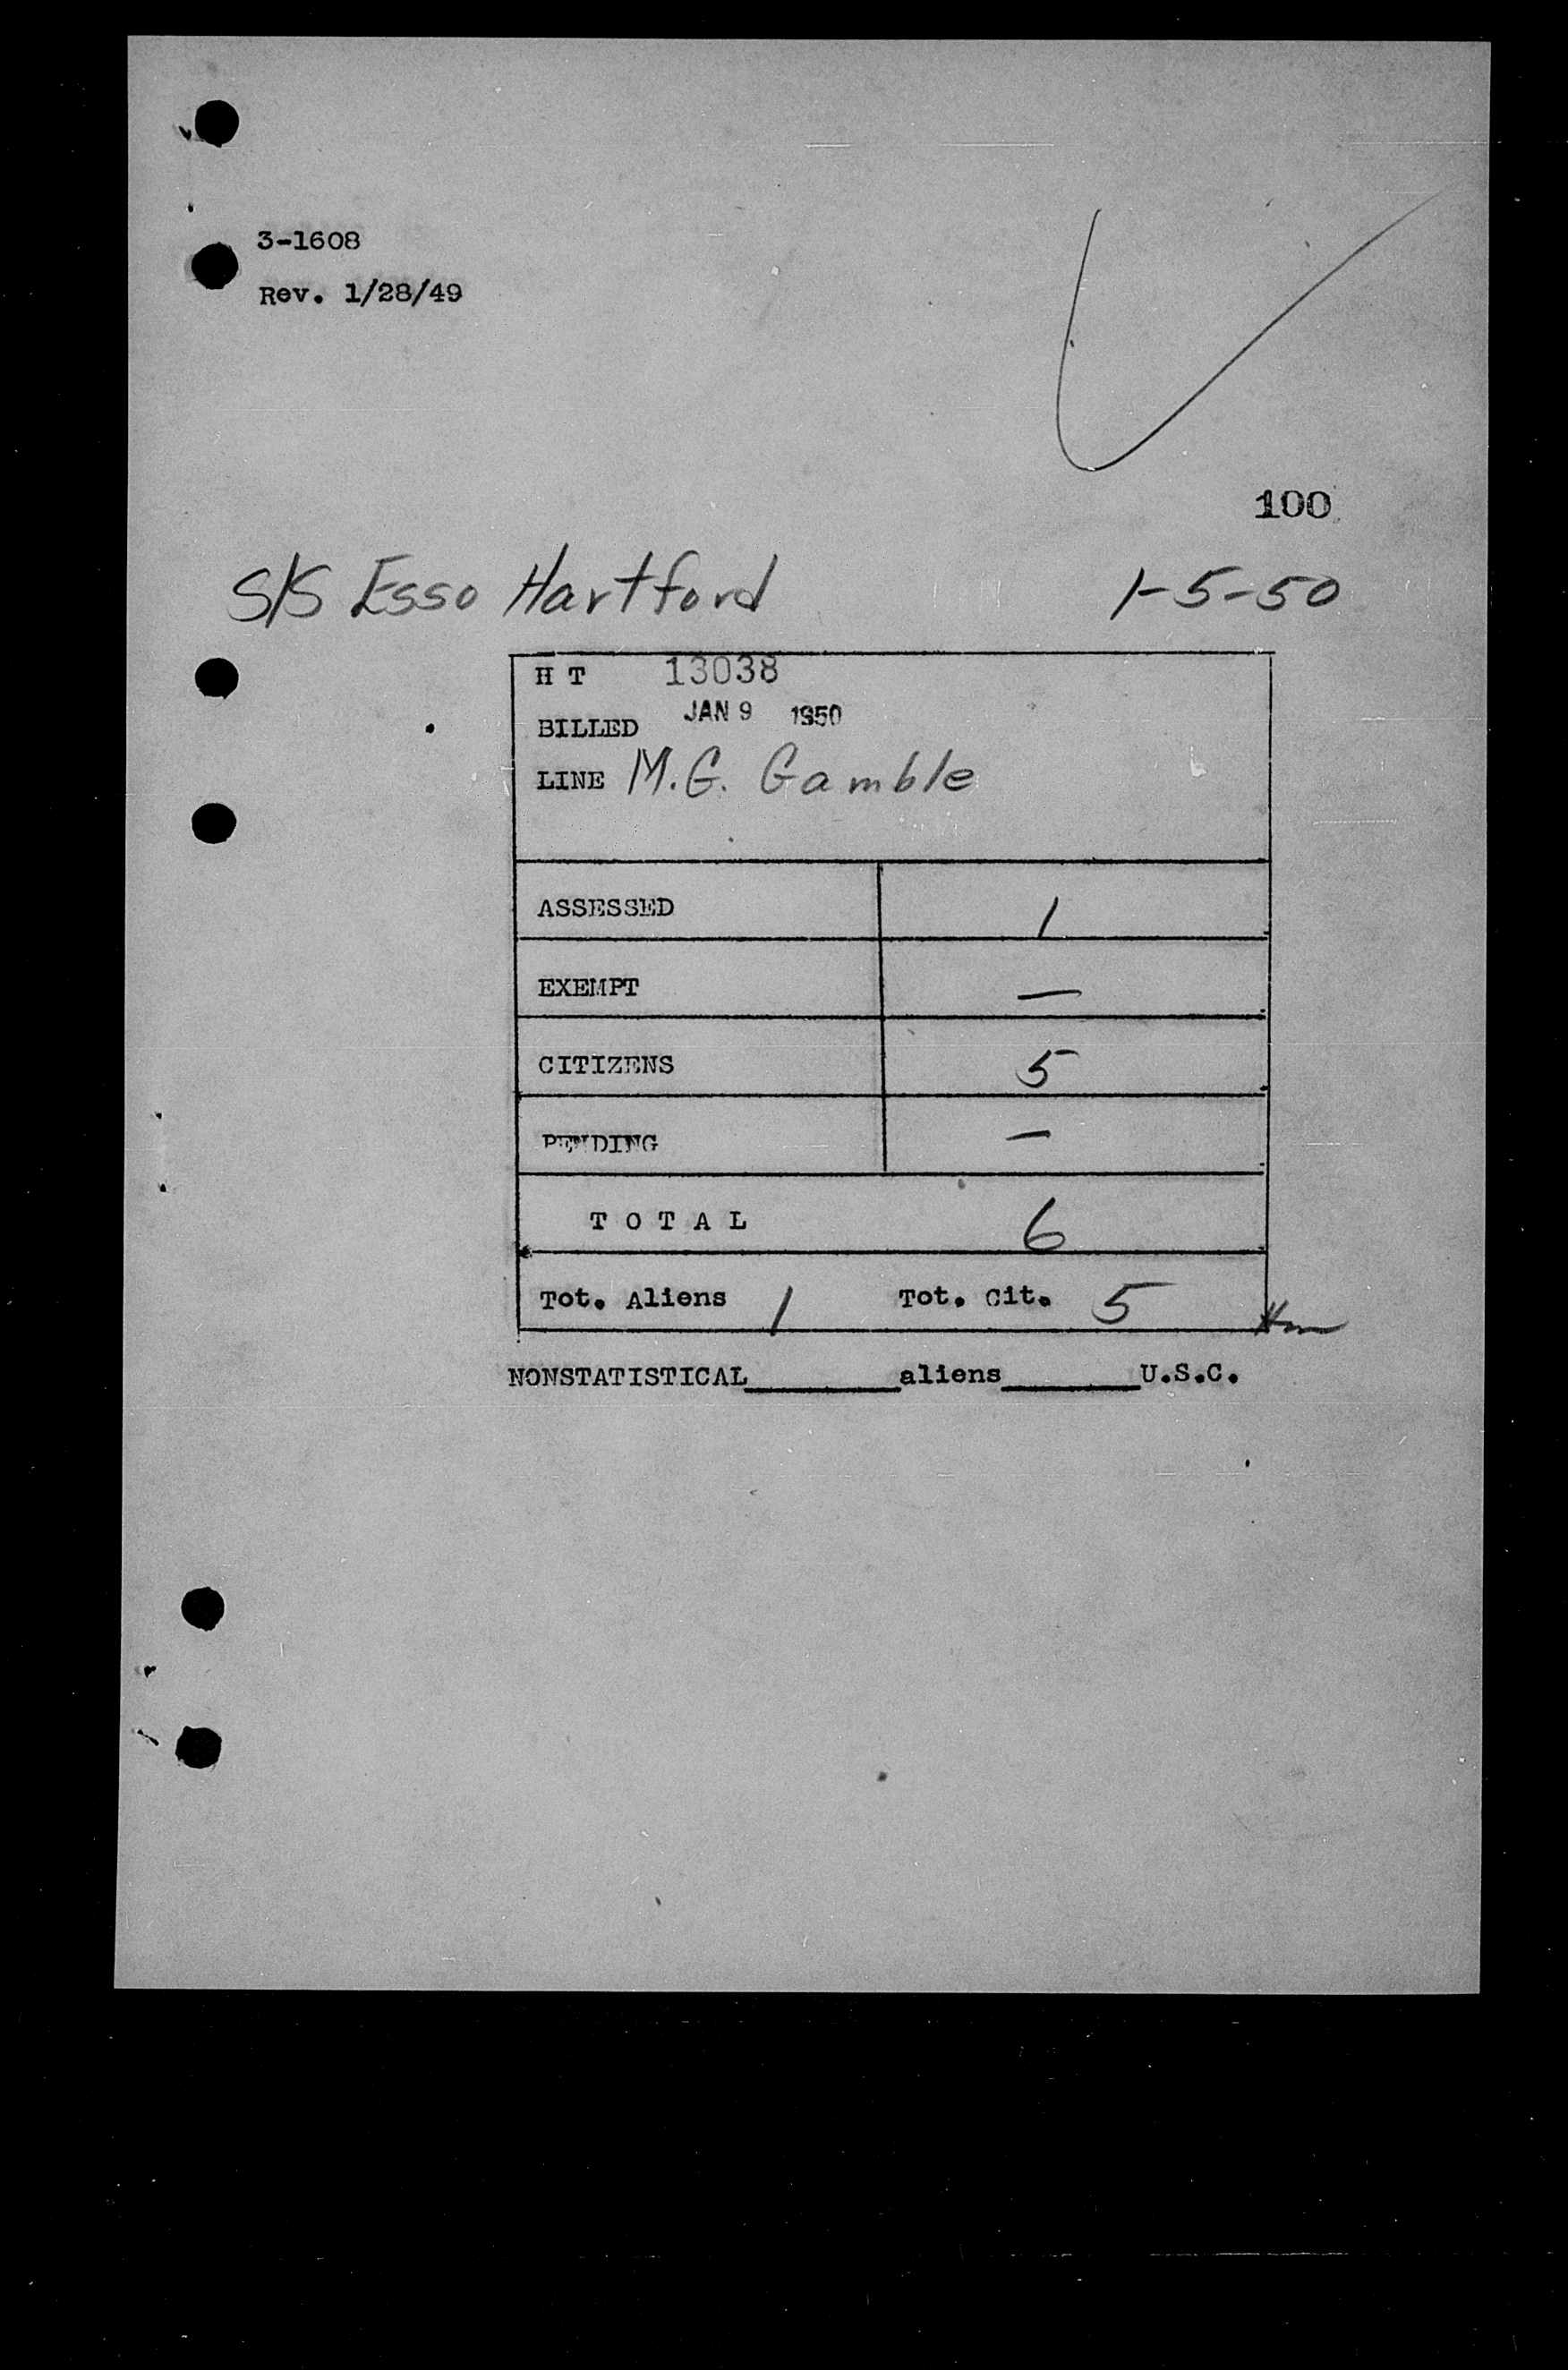 3-1608
Rev. 1/28/49
100
S/S Esso Hartford 1-5-50
H T 13038
BILLED JAN 9 1950
LINE M.G. Gamble
ASSESSED 1
EXEMPT —
CITIZENS 5
PENDING —
T O T A L 6
Tot. Aliens 1 Tot. Cit. 5
NONSTATISTICAL________aliens_______U.S.C.